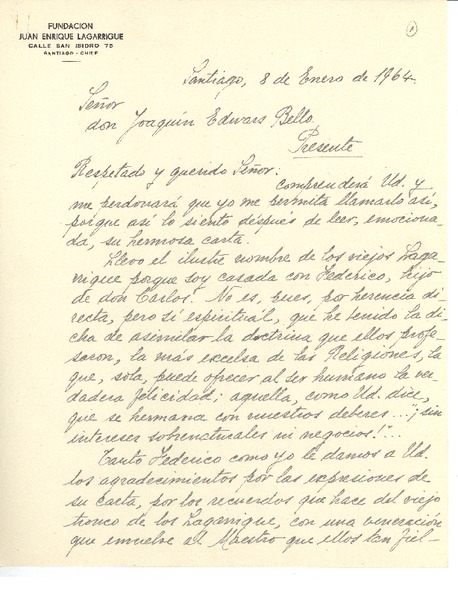 FUNDACION
JUAN ENRIQUE LAGARRIGUE
CALLE SAN ISIDRO 75
SANTIAGO - CHILE
1
Santiago, 8 de Enero de 1964.
Señor
don Joaquín Edwars Bello.
Presente
Respetado y querido Señor:
comprenderá Ud. y
me perdonará que yo me permita llamarlo así,
porque así lo siento después de leer, emociona-
da, su hermosa carta.
Llevo el ilustre nombre de los viejos Laga-
rrigue porque soy casada con Federico, hijo
de don Carlos. No es, pues, por herencia di-
recta, pero sí espiritual, que he tenido la di-
cha de asimilar la doctrina que ellos profe-
saron, la más excelsa de las Religiones, la
que, sola, puede ofrecer al ser humano la ver-
dadera felicidad; aquella, como Ud. dice,
que se hermana con nuestros deberes..."¡sin
intereses sobrenaturales ni negocios!"...
Tanto Federico como yo le damos a Ud.
los agradecimientos por las expresiones de
su carta, por los recuerdos que hace del viejo
tronco de los Lagarrigue, con una veneración
que envuelve al Maestro que ellos tan fiel-